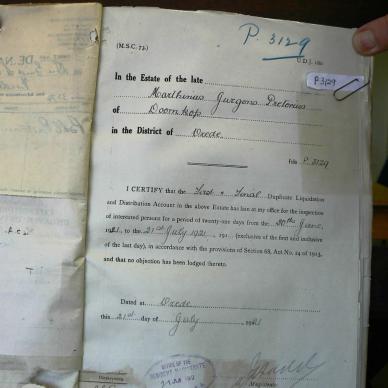 P. 3129
(M.S.C. 73.)
U.D.J.
P3129
In the Estate of the late
Marthinus Jurgens Pretorius
of Doornkop
in the District of Vrede
Folio P. 3129
I CERTIFY that the First & Final Duplicate Liquidation
and Distribution Account in the above Estate has lain at my office for the inspection
of interested persons for a period of twenty-one days from the 30th June,
1921, to the 21st July 1921, 191 (exclusive of the first and inclusive
of the last day), in accordance with the provisions of Section 68, Act No. 24 of 1913,
and that no objection has been lodged thereto.
Dated at Vrede
this 21st day of July 1921
OFFICE OF THE
RESIDENT MAGISTRATE
Magistrate